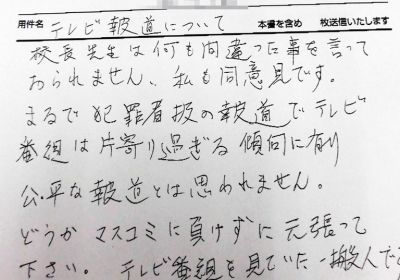 用件名 テレビ報道について 本書を含め 枚送信いたします
校長先生は何も間違った事を言って
おられません、私も同意見です。
まるで犯罪者扱の報道でテレビ
番組は片寄り過ぎる傾向に有り
公平な報道とは思われません。
どうかマスコミに負けずに元張って
下さい。 テレビ番組を見ていた一般人で